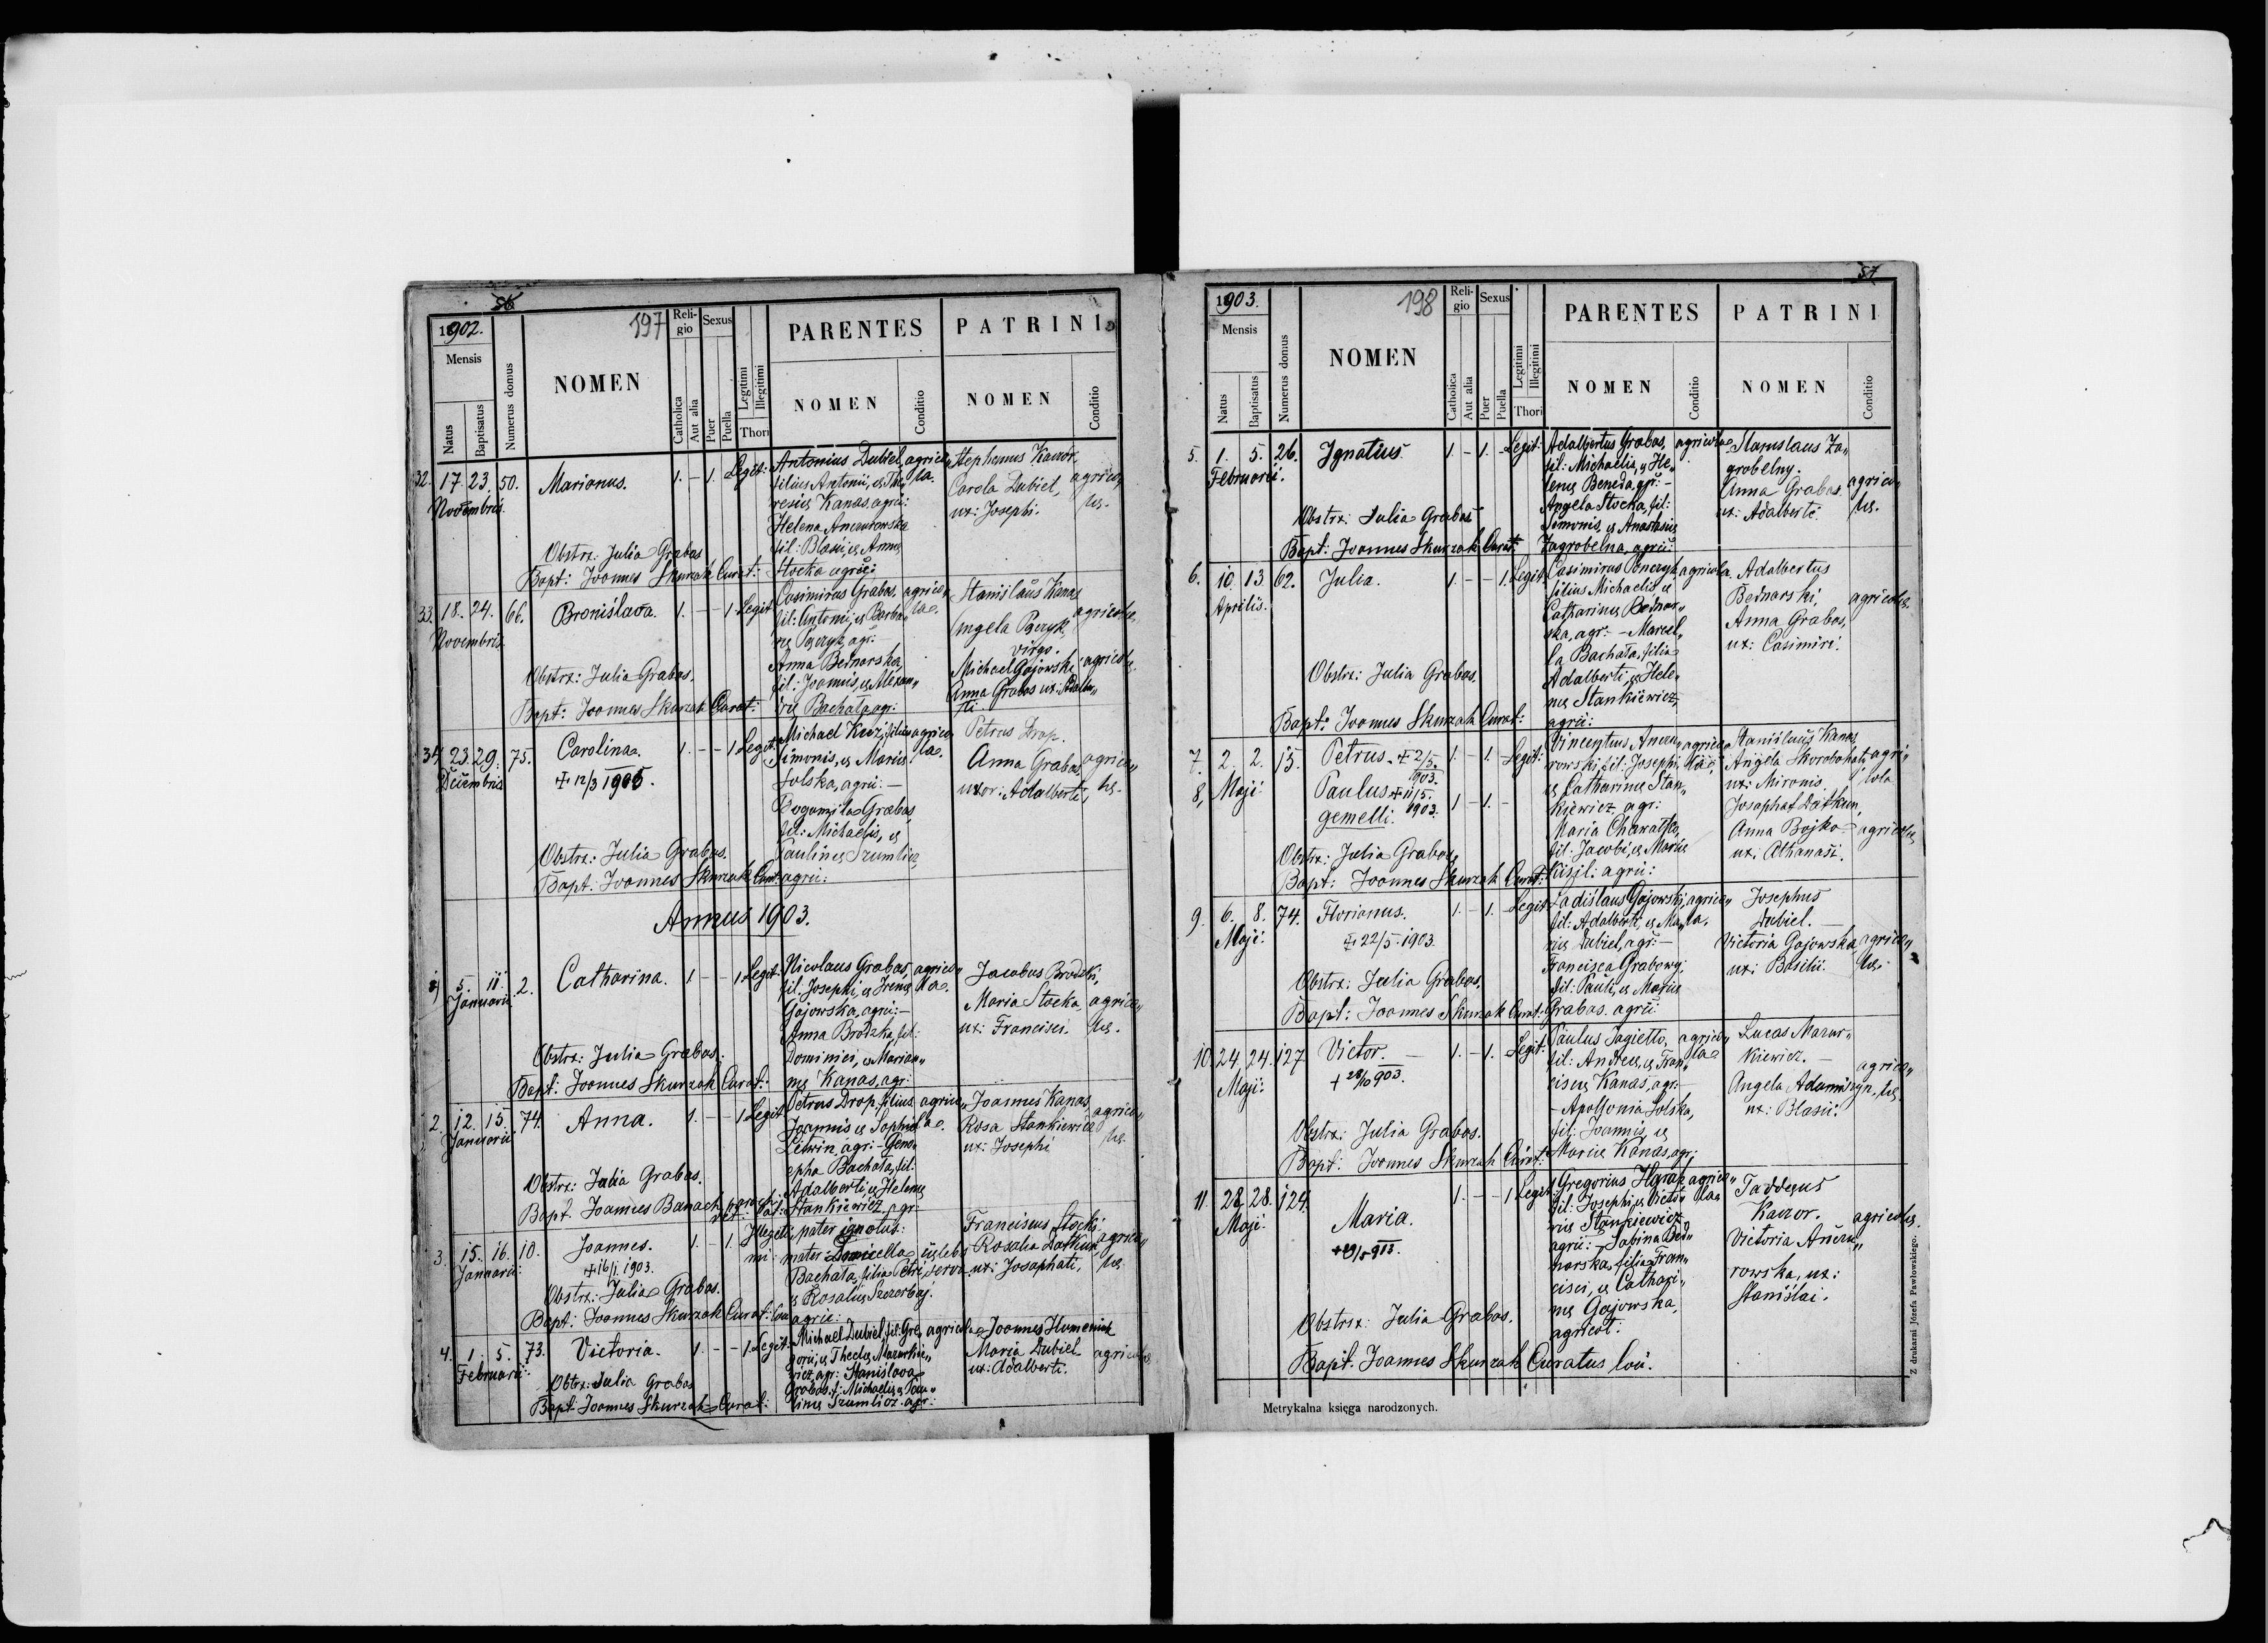 56
1902.
197
Mensis
Natus
Baptisatus
Numerus domus
NOMEN
Religio
Catholica
Aut alia
Sexus
Puer
Puella
Legitimi
Illegitimi
Thori
PARENTES
NOMEN
Conditio
PATRINI
NOMEN
Conditio
32. 17. 23. 50. Marianus. 1. - 1. Legit:
Novembris.
Antonius Dubiel, agrico„
filius Antonii, et The„ la.
resiæ Kanas. agric:
Helena
fil: Blasii, et Annæ
Stocka agric:
Stephanus Kaczor,
Carola Dubiel, agrico„
ux: Josephi. læ.
Obstrx: Julia Grabas
Bapt: Joannes Skurzak Curat:
33. 18. 24. 66. Bronislava. 1. - - 1 Legit
Novembris
Casimirus Grabas. agrico„
fil: Antonii, et Barba„ la.
agr: -
Anna Bednarska,
fil: Joannis, et
Bachata agr:
Stanislaus Kanas
agricolæ,
Angela
virgo.
Michael Gajowski agricolæ
Anna Grabas ux:
Obstrx: Julia Grabas.
Bapt: Joannes Skurzak Curat:
34 23. 29. 75. Carolina. 1. - - 1 Legit.
Decembris
+ 12/3 1905.
Michael filius agrico„
Simonis, et Mariæ la.
Solska, agric: -
Bogumila Grabas,
fil: Michaelis, et
Paulinæ Szumlicz,
agric:
Petrus Drop.
Anna Grabas agrico„
uxor: Adalberti, læ.
Obstrx: Julia Grabas.
Bapt: Joannes Skurzak Curat:
Annus 1903.
1) 5. 11. 2. Catharina. 1 - - 1 Legit:
Januarii
Nicolaus Grabas, agrico„
fil: Josephi, et Irenæ la.
Gajowska, agric: -
Anna Brodzka, fil:
Dominici, et Marian„
næ Kanas, agr:
Jacobus Brodzki,
Maria Stocka, agrico„
ux: Francisci. læ.
Obstrx: Julia Grabas.
Bapt: Joannes Skurzak Curat:
2. 12. 15. 74. Anna. 1. - - 1 Legit
Januarii
Petrus Drop, filius agrico„
Joannis et Sophiæ la.
Litwin, agr: - Geno„
epha Bachata, fil:
Adalberti, et Helenæ
Stankiewicz, agr:
Joannes Kanas, agrico„
Rosa Stankiewicz læ.
ux: Josephi
Obstrx: Julia Grabas.
Bapt. Joannes Banach
3. 15. 16. 10. Joannes. 1. - 1. Illegiti
mi
Januarii:
+ 16/1. 1903.
pater ignotus:
mater
Bachata, filia Petri, serva
et Rosaliæ
agric:
Franciscus Stocki
Rosalia Datkun agrico„
ux: Josaphati, læ.
Obstrx: Julia Grabas.
Bapt: Joannes Skurzak Curat:
4. 1. 5. 73. Victoria. 1. - - 1. Legit.
Februarii:
Michael Dubiel, fil: Gre„ agricola
gorii, et Theclæ Mazurkie„
wicz, agr: Stanislava
Grabas, f: Michaelis, et Pau„
linæ Szumlicz. agr:
Joannes Humeniuk
Maria Dubiel agricolæ
ux: Adalberti.
Obstrx: Julia Grabas
Bapt: Joannes Skurzak Curat:
57
1903.
198
Mensis
Natus
Baptisatus
Numerus domus
NOMEN
Religio
Catholica
Aut alia
Sexus
Puer
Puella
Legitimi
Illegitimi
Thori
PARENTES
NOMEN
Conditio
PATRINI
NOMEN
Conditio
5. 1. 5. 26. Ignatius. 1. - 1. - Legit:
Februarii.
Adalbertus Grabas, agricola
fil: Michaelis, et He„
lenæ Beneda, agr: -
Angela Stocka, fil:
Simonis, et Anastasiæ
Zagrobelna, agric:
Stanislaus Za„
grobelny.
Anna Grabas agrico„
ux: Adalberti læ.
Obstrx: Julia Grabas
Bapt: Joannes Skurzak Curat:
6. 10 13 62. Julia. 1. - - 1. Legit.
Aprilis.
Casimirus agricola.
filius Michaelis, et
Catharinæ Bednar„
ska, agr: - Marcel„
la Bachata, filia
Adalberti, et Hele„
næ Stankiewicz,
agric:
Adalbertus
Bednarski, agricolæ.
Anna Grabas,
ux: Casimiri.
Obstrx: Julia Grabas.
Bapt: Joannes Skurzak Curat:
7. 2. 2. 15. Petrus. + 2/5. 1 - 1. - Legit:
1903.
8, Maji Paulus + 11/5. 1 - 1. -
gemelli. 1903.
Vincentius agrico„
rowski, fil: Josephi, la.
et Catharinæ Stan„
kiewicz agr:
Maria
fil: Jacobi, et Mariæ
agric:
Stanislaus Kanas,
Angela Skorobohata, agri„
ux: Mironis. cola
Josaphat Datkun,
Anna Bojko agricolæ,
ux: Athanasi.
Obstrx: Julia Grabas
Bapt: Joannes Skurzak Curat:
9. 6. 8. 74. Florianus. 1. - 1. - Legit:
Maji:
+ 22/5. 1903.
Ladislaus Gajowski, agrico„
fil: Adalberti, et Ma„ la,
riæ Dubiel, agr: -
Francisca
fil: Pauli, et Mariæ
Grabas. agric:
Josephus
Dubiel. -
Victoria Gajowska, agrico„
ux: Basilii. læ.
Obstrx: Julia Grabas.
Bapt: Joannes Skurzak Curat:
10. 24. 24. 127 Victor. - 1. - 1. - Legit.
Maji:
+ 28/10 903.
Paulus Jagiello, agrico„
fil: Andreæ, et Fran„ la
ciscæ Kanas, agr: -
- Apollonia Solska,
fil: Joannis, et
Mariæ Kanas, agr:
Lucas Mazur„
kiewicz. - agrico„
Angela læ
ux: Blasii.
Obstrx: Julia Grabas.
Bapt: Joannes Skurzak Curat:
11. 28. 28. 124. Maria. 1. - - 1 Legit
Maji:
Gregorius agrico„
fil: Josephi, et Victo„ la
riæ Stankiewicz
agric: - Sabina Bed„
narska, filia Fran„
cisci, et Cathari„
næ Gajowska,
agricol:
Taddeus
Kaczor. agricolæ.
Victoria
rowska, ux:
Stanislai.
Obstrx: Julia Grabas.
Bapt. Joannes Skurzak Curatus loci.
Metrykalna księga narodzonych.
Z drukarni Józefa Pawłowskiego.